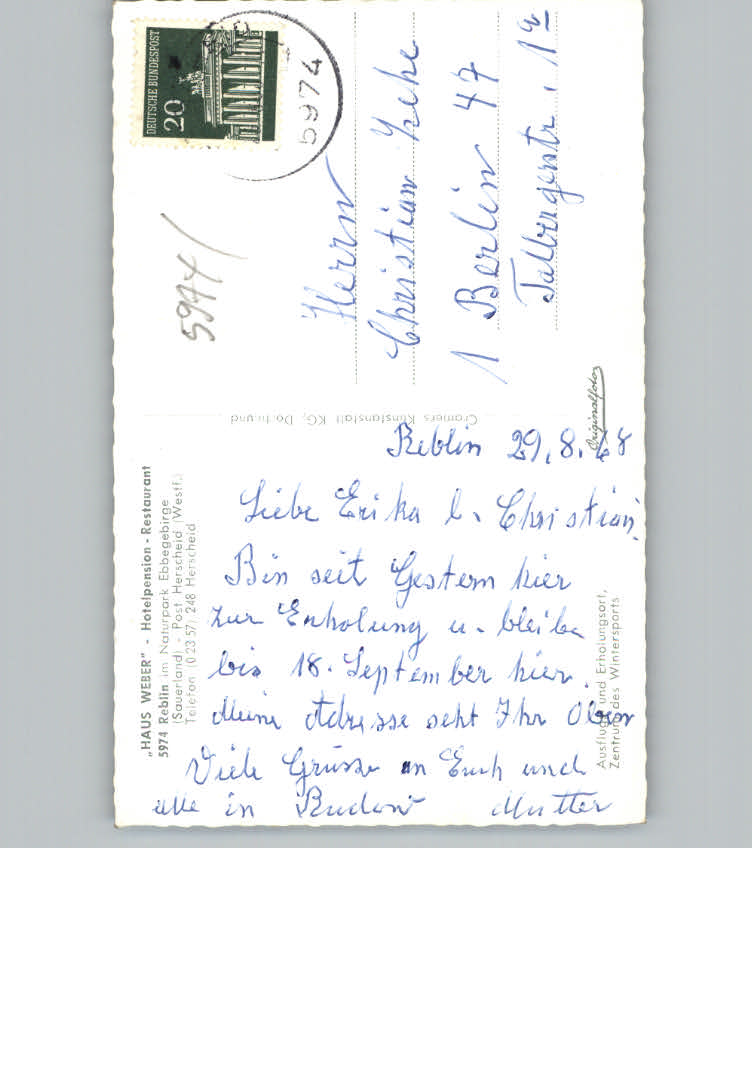 DEUTSCHE BUNDESPOST
20
5974
5974
Herrn
Christian
1 Berlin 47
Originalfoto
Cramers Kunstanstalt KG, Dortmund
„HAUS WEBER" - Hotelpension - Restaurant
5974 Reblin im Naturpark Ebbegebirge
(Sauerland) - Post Herscheid (Westf.)
Telefon (0 23 57) 248 Herscheid
Reblin 29.8.68
Liebe Erika u. Christian.
Bin seit Gestern hier
zur Erholung u. bleibe
bis 18. September hier.
Meine Adresse seht Ihr Oben
Viele Grüsse an Euch und
alle in Rudow Mutter
Ausflugs- und Erholungsort,
Zentrum des Wintersports